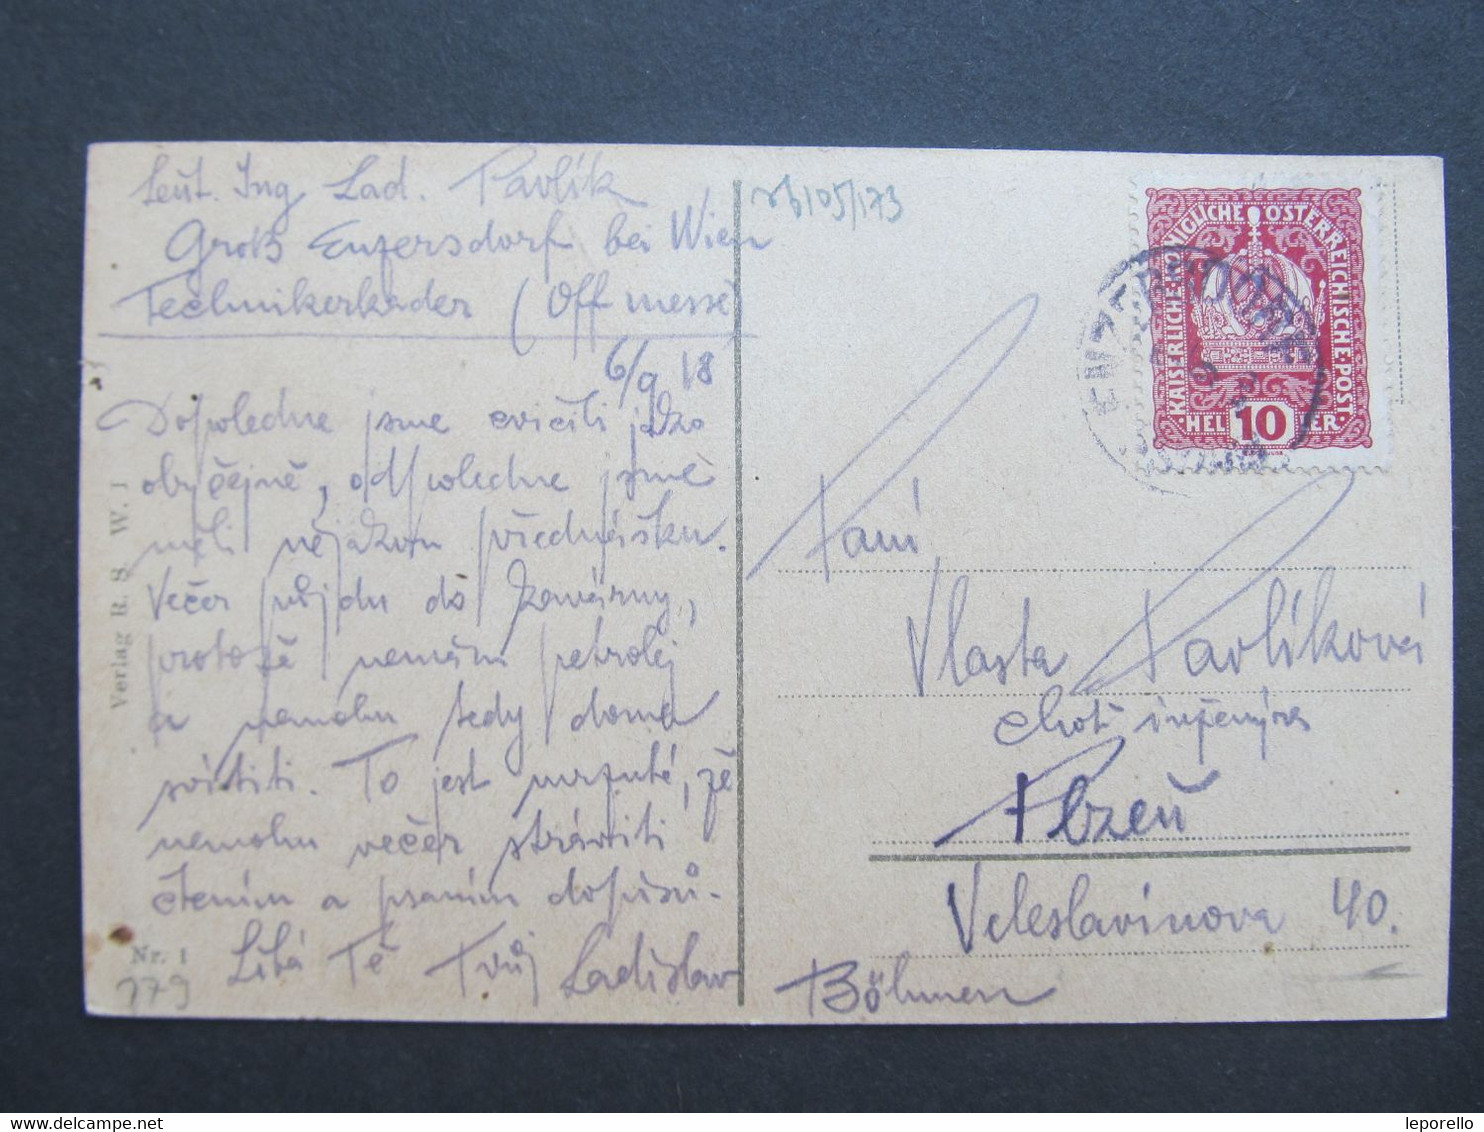 Leut. Ing Lad. Pavlík
Groß Enzersdorf bei Wien
Technikerkader (Off messe)
6/9 18
Dopoledne jsme cvičili jako
obyčejně, odpoledne jsme
měli nějakou přednášku.
Večer půjdu do kavárny,
protože nemám petrolej
a nemohu tedy doma
svítiti. To jest mrzuté, že
nemohu večer stráviti
čtením a psaním dopisů.
Líbá Tě Tvůj Ladislav
Verlag R. S. W. I
Nr. 1
179
105/173
KAISERLICHE KÖNIGLICHE ÖSTERREICHISCHE POST
HELLER 10
Paní
Vlasta Pavlíková
choť inženýra
Plzeň
Veleslavínova 40.
Böhmen
leporello